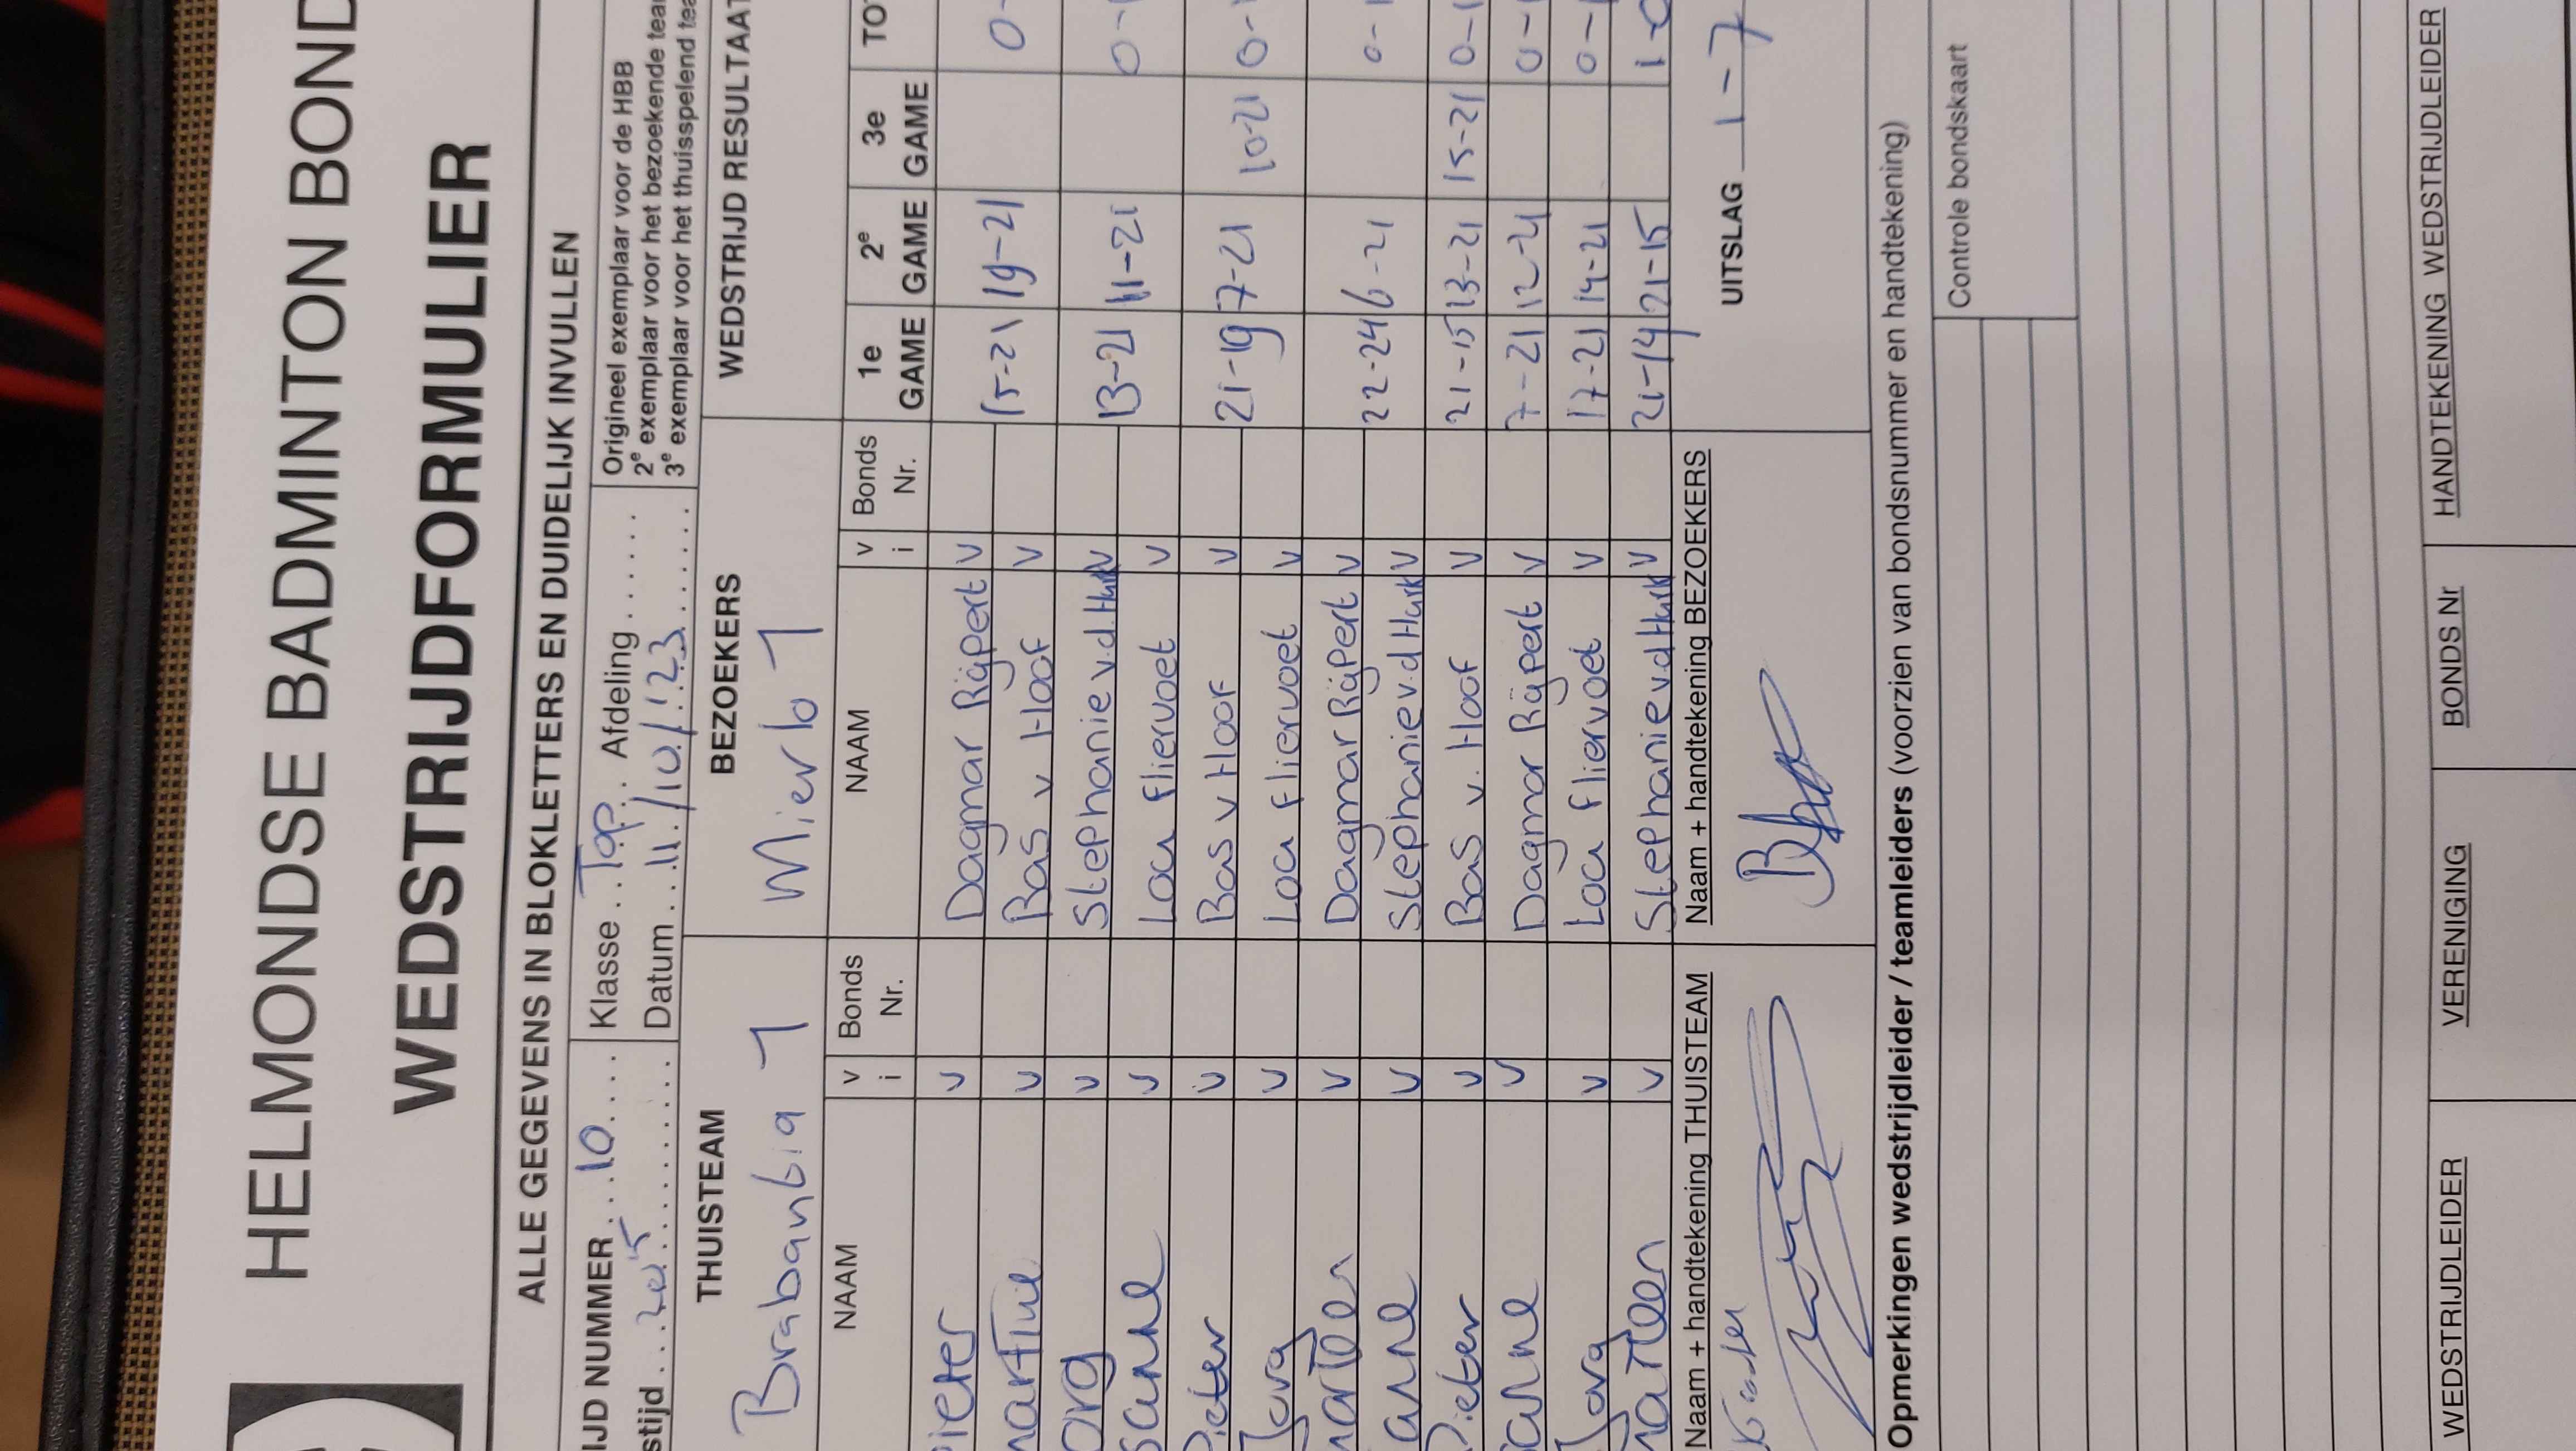 HELMONDSE BADMINTON BOND
WEDSTRIJDFORMULIER
ALLE GEGEVENS IN BLOKLETTERS EN DUIDELIJK INVULLEN
IJD NUMMER 10 Klasse Top Afdeling Origineel exemplaar voor de HBB
stijd Datum 11/10/'23 2e exemplaar voor het bezoekende tea
3e exemplaar voor het thuisspelend tea
THUISTEAM BEZOEKERS WEDSTRIJD RESULTAAT
Brabantia 1 Mierlo 1
NAAM v i Bonds Nr. NAAM v i Bonds Nr. 1e GAME 2e GAME 3e GAME TO
ieter v Dagmar Rijpert v
v Bas v Hoof v 15-21 19-21 0-
org v Stephanie v.d. Hurk v
sanne v Loa Fliervoet v 13-21 11-21 0-1
Pieter v Bas v Hoof v
Jorg v Loa Fliervoet v 21-19 7-21 10-21 0-1
v Dagmar Rijpert v
anne v Stephanie v.d Hurk v 22-24 6-21 0-1
Pieter v Bas v. Hoof v 21-15 13-21 15-21 0-1
anne v Dagmar Rijpert v 7-21 12-21 0-1
Jorg v Loa Fliervoet v 17-21 14-21 0-1
v Stephanie v.d Hurk v 21-14 21-15 1-0
Naam + handtekening THUISTEAM Naam + handtekening BEZOEKERS UITSLAG 1-7
Opmerkingen wedstrijdleider / teamleiders (voorzien van bondsnummer en handtekening)
Controle bondskaart
WEDSTRIJDLEIDER VERENIGING BONDS Nr HANDTEKENING WEDSTRIJDLEIDER